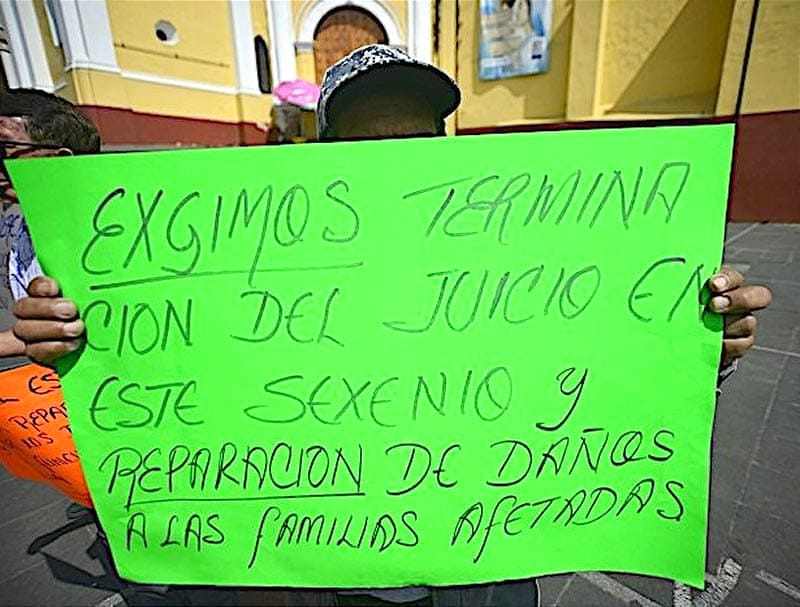 EXGIMOS TERMINA
CION DEL JUICIO EN
ESTE SEXENIO Y
REPARACION DE DAÑOS
A LAS FAMILIAS AFETADAS